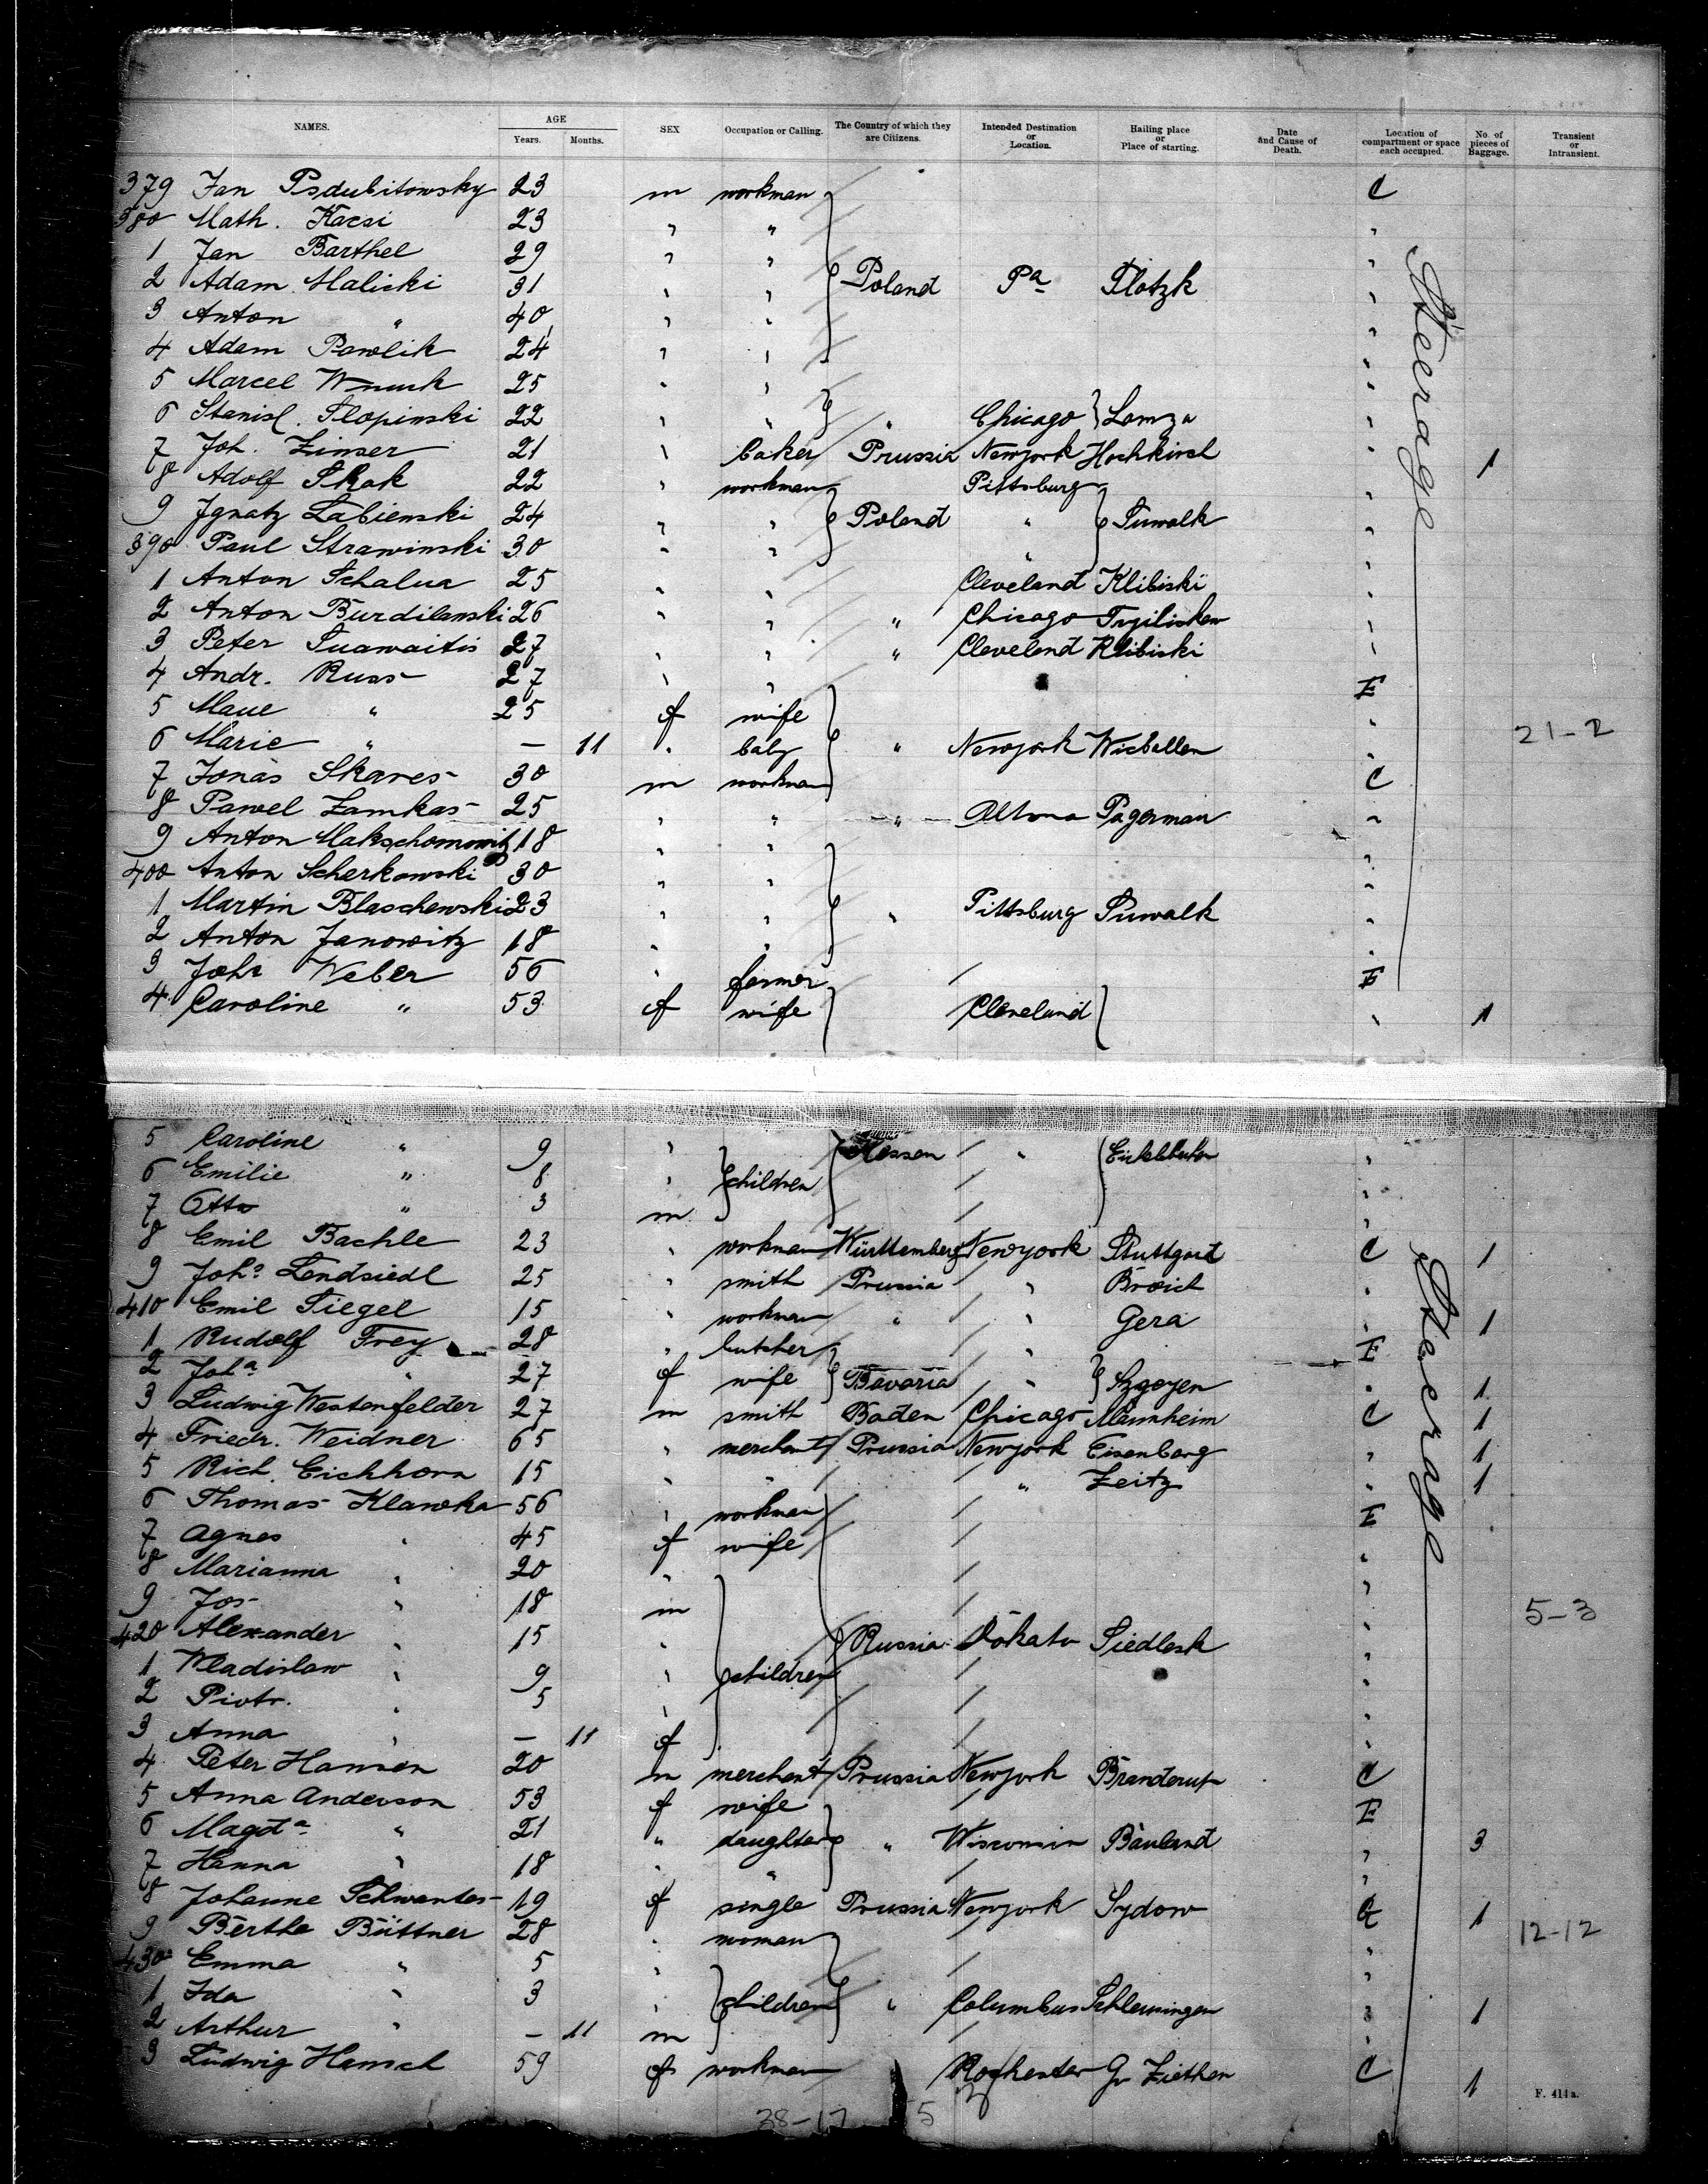 NAMES. AGE Years. Months. SEX Occupation or Calling. The Country of which they are Citizens. Intended Destination or Location. Hailing place or Place of starting. Date and Cause of Death. Location of compartment or space each occupied. No. of pieces of Baggage. Transient or Intransient.
379 Jan Psdubitowsky 23 m workman C
380 Math. Kacsi 23 " " "
1 Jan Barthel 29 " " "
2 Adam Malicki 31 " " Poland Pa Plotzk "
3 Anton " 40 " " "
4 Adam Pawlik 24 " " "
5 Marcel 25 " " "
6 Stanisl. Slopinski 22 " " " Chicago Lomza "
7 Joh. Zinser 21 " baker Prussia Newyork Hochkirch " 1
8 Adolf Skok 22 " workman Pittsburg "
9 Ignatz Labienski 24 " " Poland " Suwalk "
390 Paul Strawinski 30 " " " "
1 Anton Schalua 25 " " Cleveland Klibiski "
2 Anton Burdilanski 26 " " " Chicago "
3 Peter Suawaitis 27 " " " Cleveland Klibiski "
4 Andr. Russ 27 " " E
5 " 25 f wife "
6 Marie " — 11 " baby " Newyork Wirballen " 21-2
7 Jonas Skares 30 m workman C
8 Pawel Zamkas 25 " " " Altona Pagerman "
9 Anton Makschomowitz 18 " " "
400 Anton Scherkowski 30 " " "
1 Martin Blaschewski 23 " " " Pittsburg Suwalk "
2 Anton Janowitz 18 " " "
3 Joh. Weber 56 " farmer E
4 Caroline " 53 f wife Cleveland " 1
Steerage
5 Caroline " 9 " Hessen " "
6 Emilie " 8 " children "
7 Otto " 3 m "
8 Emil Bachle 23 " workman Württemberg Newyork Stuttgart C 1
9 Joh. Lendsiedl 25 " smith Prussia " Broich "
410 Emil Siegel 15 " workman " " Gera " 1
1 Rudolf Frey 28 " butcher " E
2 Joha " 27 f wife Bavaria " " 1
3 Ludwig Westenfelder 27 m smith Baden Chicago Mannheim C 1
4 Friedr. Weidner 65 " merchant Prussia Newyork Eisenberg " 1
5 Rich. Eichhorn 15 " " " Zeitz " 1
6 Thomas Klawka 56 " workman E
7 Agnes " 45 f wife "
8 Marianna " 20 " "
9 Jos " 18 m " 5-3
420 Alexander " 15 " Russia Dokato Siedlesk "
1 Wladislaw " 9 " children "
2 Piotr. " 5 " "
3 Anna " — 11 f "
4 Peter Hansen 20 m merchant Prussia Newyork Branderup C
5 Anna Anderson 53 f wife E
6 Magda " 21 " daughter " Wisconsin Bauland " 3
7 Hanna " 18 " " "
8 Johanne Schwantes 19 f single Prussia Newyork Sydow G 1
9 Bertha Büttner 28 " woman " 12-12
430 Emma " 5 " "
1 Ida " 3 " children " Columbus Schleusingen " 1
2 Arthur " — 11 m "
3 Ludwig Hensel 59 f workman Rochester Gr Ziethen C 1
Steerage
F. 414a.
38-17 5